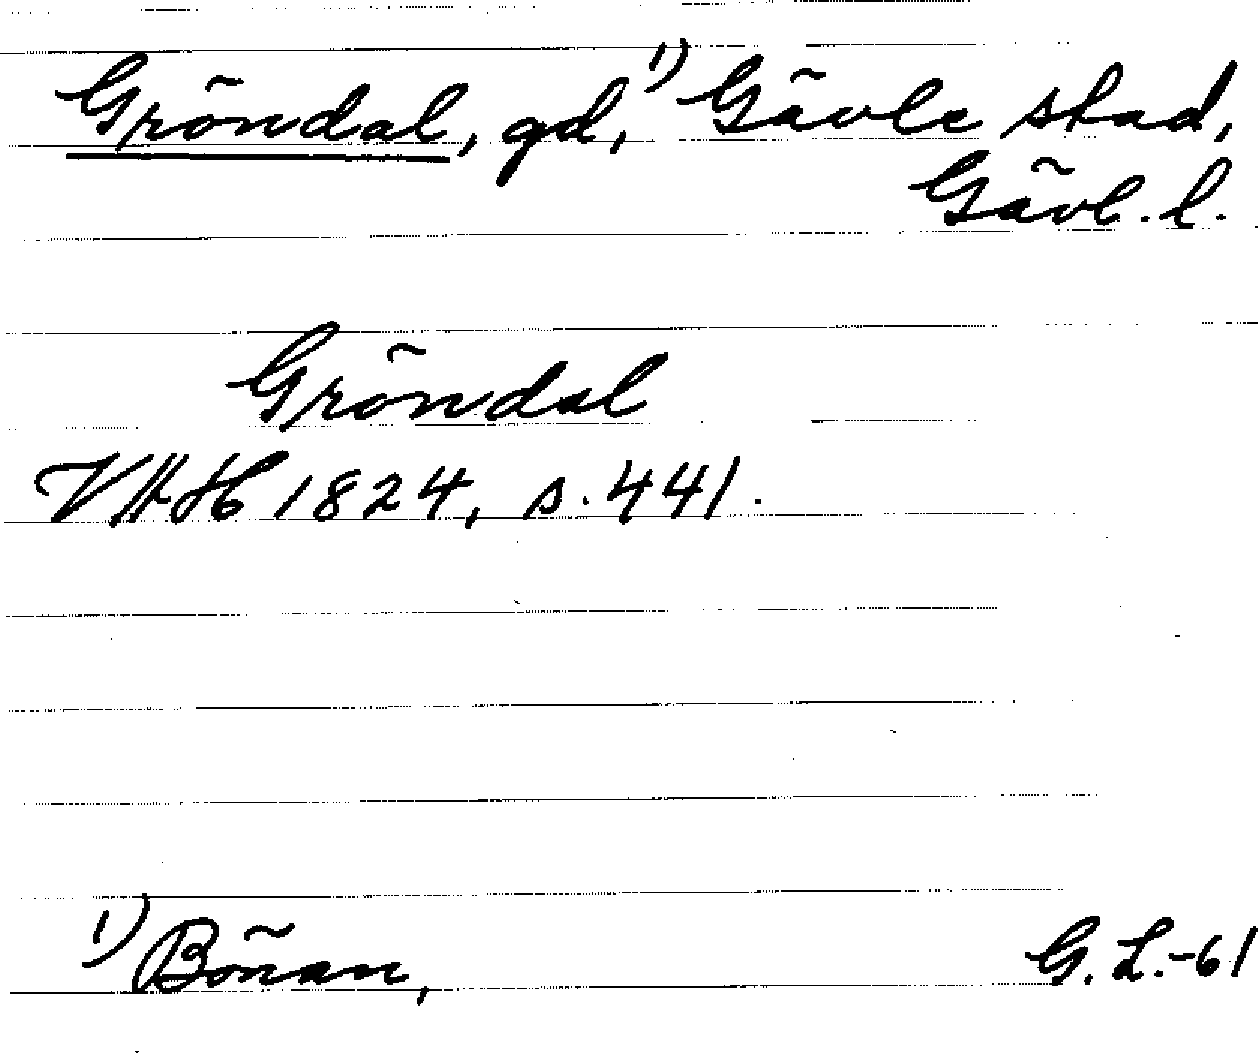 Gröndal, gd, 1) Gävle stad,
Gävl. l.
Gröndal
VHH 1824, s. 441.
1) Bönan,
G. L.-61